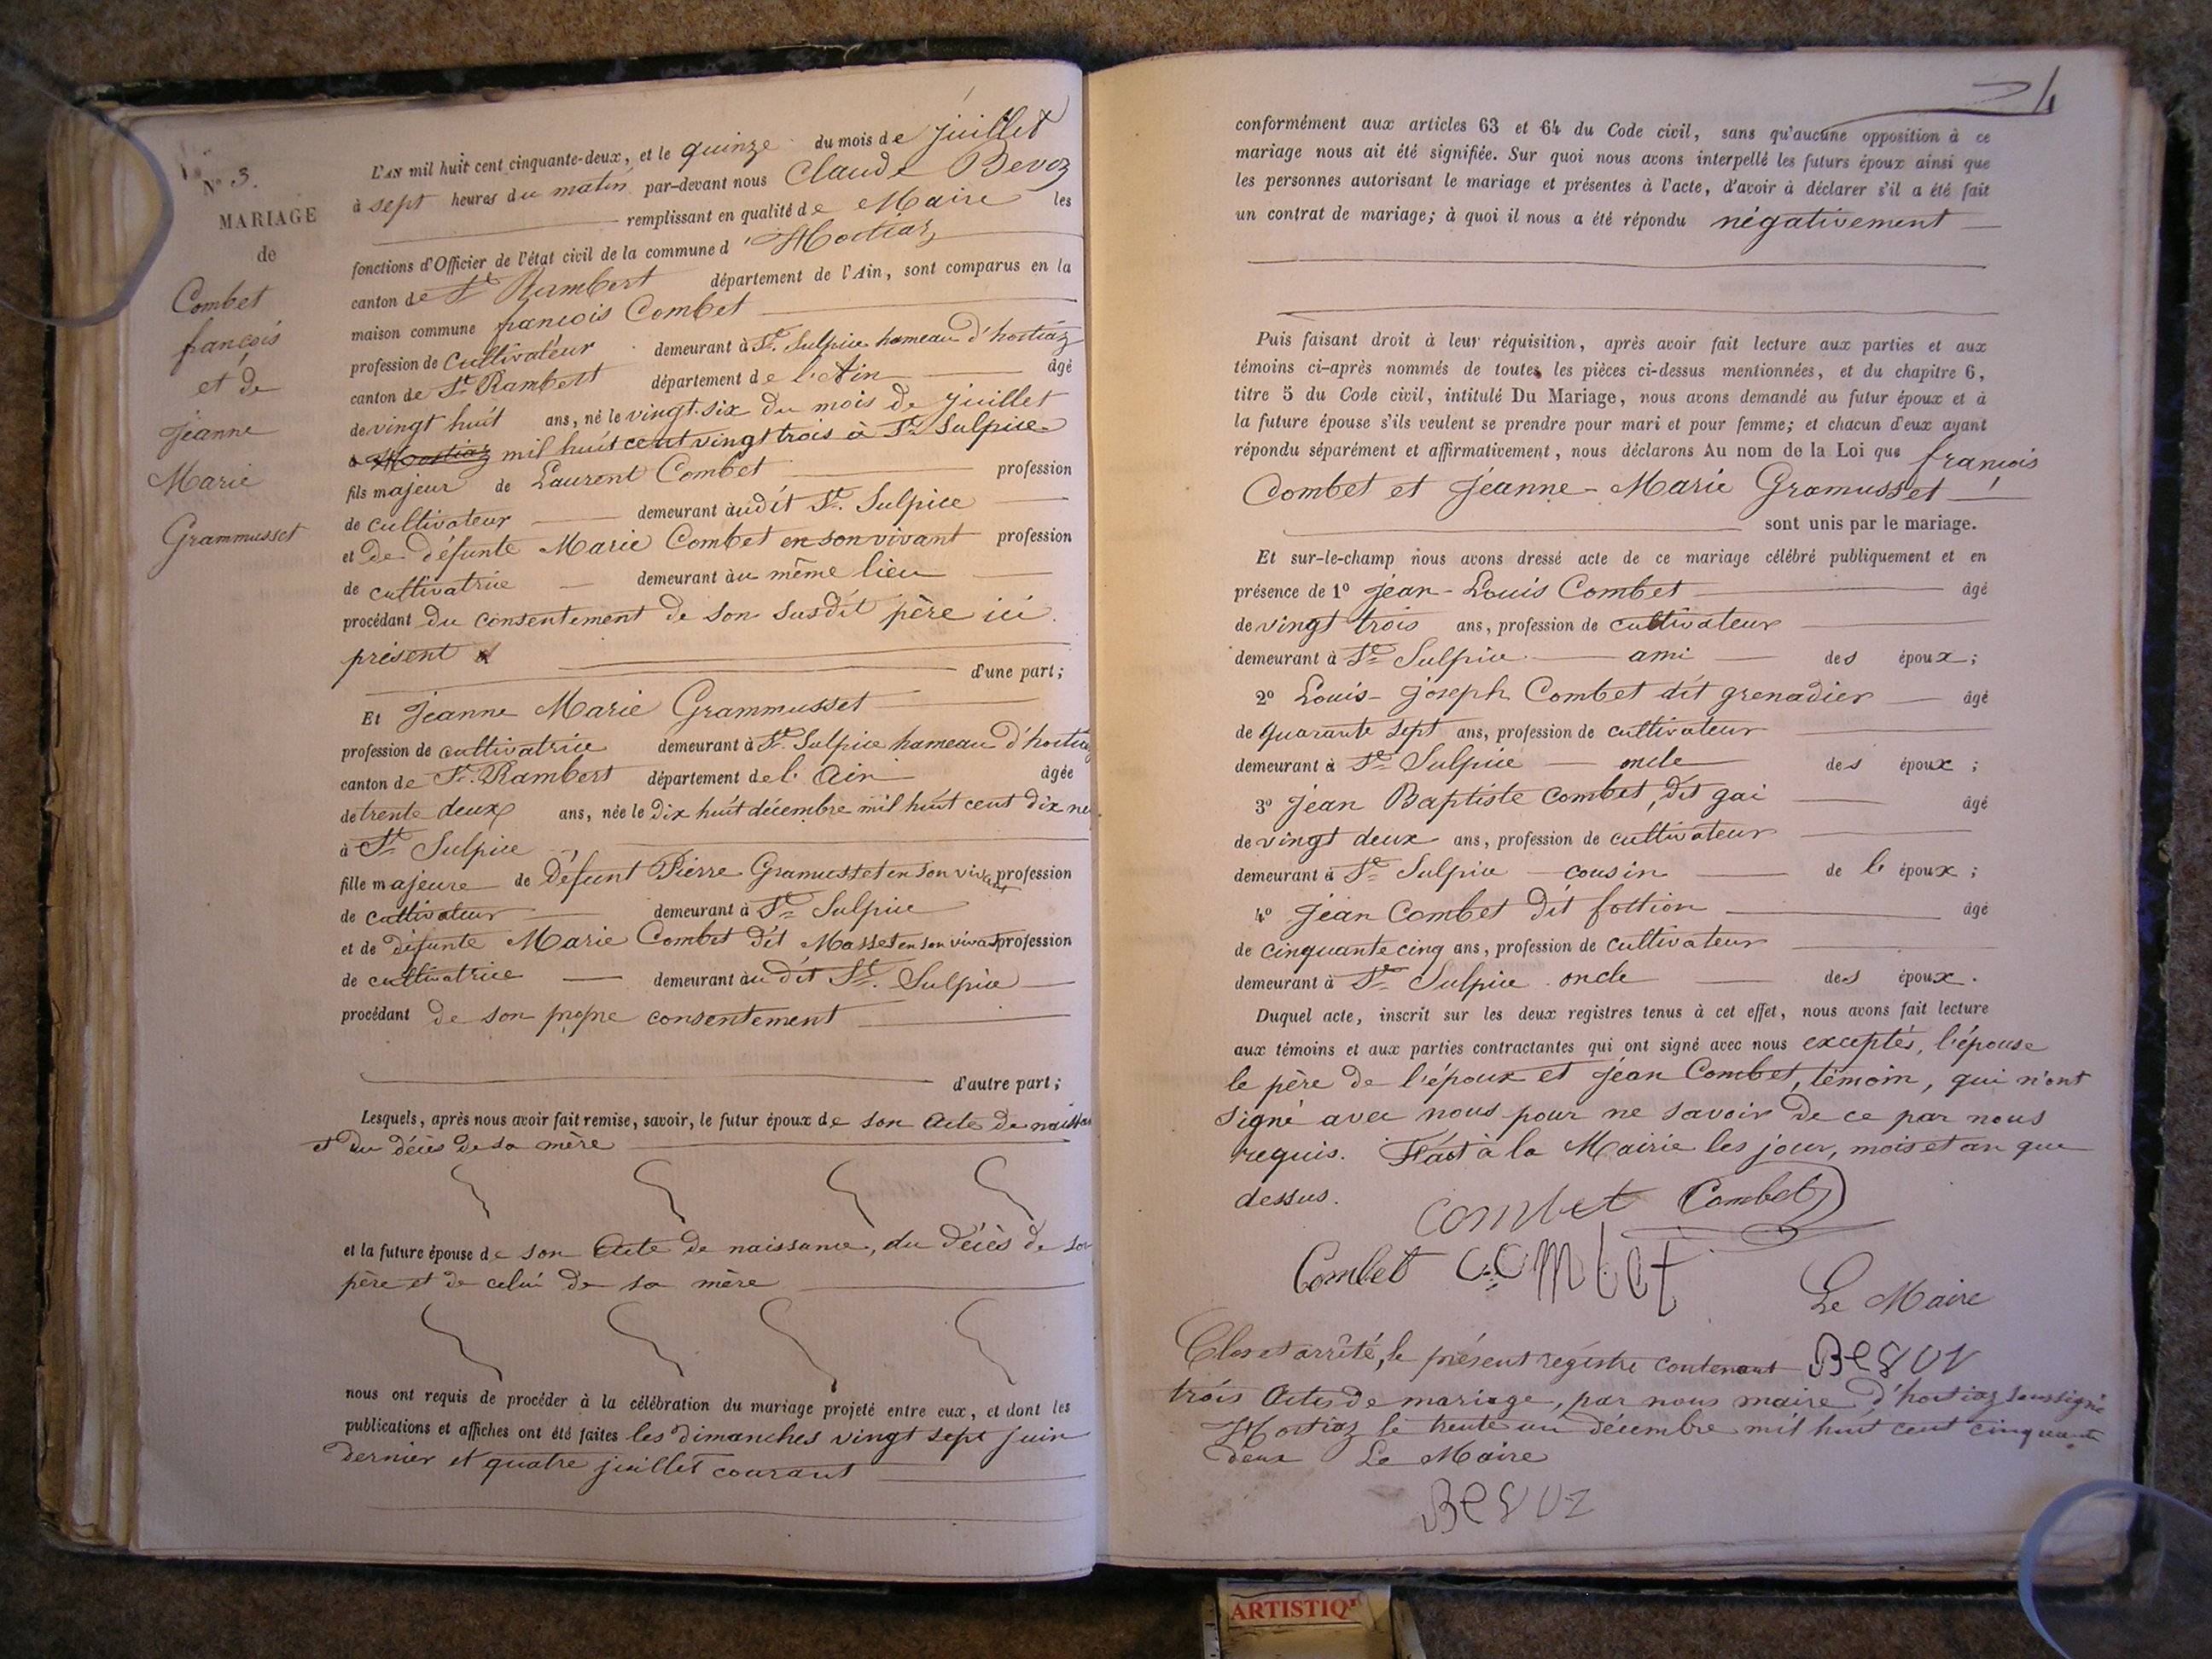 N° 3.
MARIAGE
de
Combet
françois
et de
Jeanne
Marie
Grammusset
L'AN mil huit cent cinquante-deux, et le quinze du mois de juillet
à sept heures du matin par-devant nous Claude Bevoz
remplissant en qualité de Maire les
fonctions d'Officier de l'état civil de la commune d'Hostiaz
canton de St Rambert département de l'Ain, sont comparus en la
maison commune françois Combet
profession de cultivateur demeurant à St. Sulpice hameau d'hostiaz
canton de St. Rambert département de l'Ain âgé
de vingt huit ans, né le vingt-six du mois de juillet
à Hostiaz mil huit cent vingt trois à St. Sulpice
fils majeur de Laurent Combet profession
de cultivateur demeurant audit St. Sulpice
et de défunte Marie Combet en son vivant profession
de cultivatrice demeurant au même lieu
procédant du consentement de son susdit père ici
présent
d'une part;
Et Jeanne Marie Grammusset
profession de cultivatrice demeurant à St. Sulpice hameau d'hostiaz
canton de St. Rambert département de l'Ain âgée
de trente deux ans, née le dix huit décembre mil huit cent dix ne
à St. Sulpice
fille majeure de défunt Pierre Gramusset en son vivant profession
de cultivateur demeurant à St. Sulpice
et de défunte Marie Combet dit Masset en son vivant profession
de cultivatrice demeurant au dit St. Sulpice
procédant de son propre consentement
d'autre part;
Lesquels, après nous avoir fait remise, savoir, le futur époux de son Acte de naissan
et du décès de sa mère
et la future épouse de son Acte de naissance, du décès de son
père et de celui de sa mère
nous ont requis de procéder à la célébration du mariage projeté entre eux, et dont les
publications et affiches ont été faites les dimanches vingt sept juin
dernier et quatre juillet courant
conformément aux articles 63 et 64 du Code civil, sans qu'aucune opposition à ce
mariage nous ait été signifiée. Sur quoi nous avons interpellé les futurs époux ainsi que
les personnes autorisant le mariage et présentes à l'acte, d'avoir à déclarer s'il a été fait
un contrat de mariage; à quoi il nous a été répondu négativement
Puis faisant droit à leur réquisition, après avoir fait lecture aux parties et aux
témoins ci-après nommés de toutes les pièces ci-dessus mentionnées, et du chapitre 6,
titre 5 du Code civil, intitulé Du Mariage, nous avons demandé au futur époux et à
la future épouse s'ils veulent se prendre pour mari et pour femme; et chacun d'eux ayant
répondu séparément et affirmativement, nous déclarons Au nom de la Loi que françois
Combet et Jeanne-Marie Gramusset
sont unis par le mariage.
Et sur-le-champ nous avons dressé acte de ce mariage célébré publiquement et en
présence de 1° Jean-Louis Combet âgé
de vingt trois ans, profession de cultivateur
demeurant à St. Sulpice ami des époux;
2° Louis-joseph Combet dit grenadier âgé
de quarante sept ans, profession de cultivateur
demeurant à St. Sulpice oncle des époux;
3° Jean Baptiste Combet, dit gai âgé
de vingt deux ans, profession de cultivateur
demeurant à St. Sulpice cousin de l'époux;
4° Jean Combet dit fottion âgé
de cinquante cinq ans, profession de cultivateur
demeurant à St. Sulpice oncle des époux.
Duquel acte, inscrit sur les deux registres tenus à cet effet, nous avons fait lecture
aux témoins et aux parties contractantes qui ont signé avec nous exceptés, l'épouse
le père de l'époux et Jean Combet, témoin, qui n'ont
signé avec nous pour ne savoir de ce par nous
requis. Fait à la Mairie les jour, mois et an que
dessus.
combet Combet
Combet combet
Le Maire
Bevoz
Clos et arrêté, le présent registre contenant
trois Actes de mariage, par nous maire d'hostiaz soussigné
Hostiaz le trente un décembre mil huit cent cinquante
deux Le Maire
Bevoz
ARTISTIQ